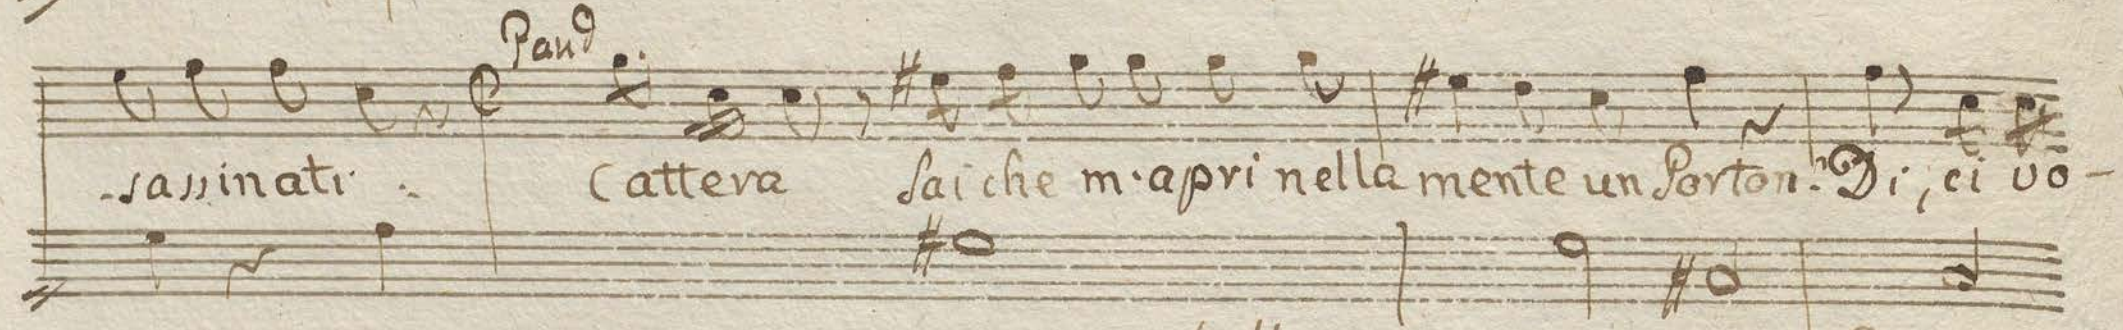 Pand
-sassinati. Cattera Sai che m'apri nella mente un Porton? Di, ci vo-